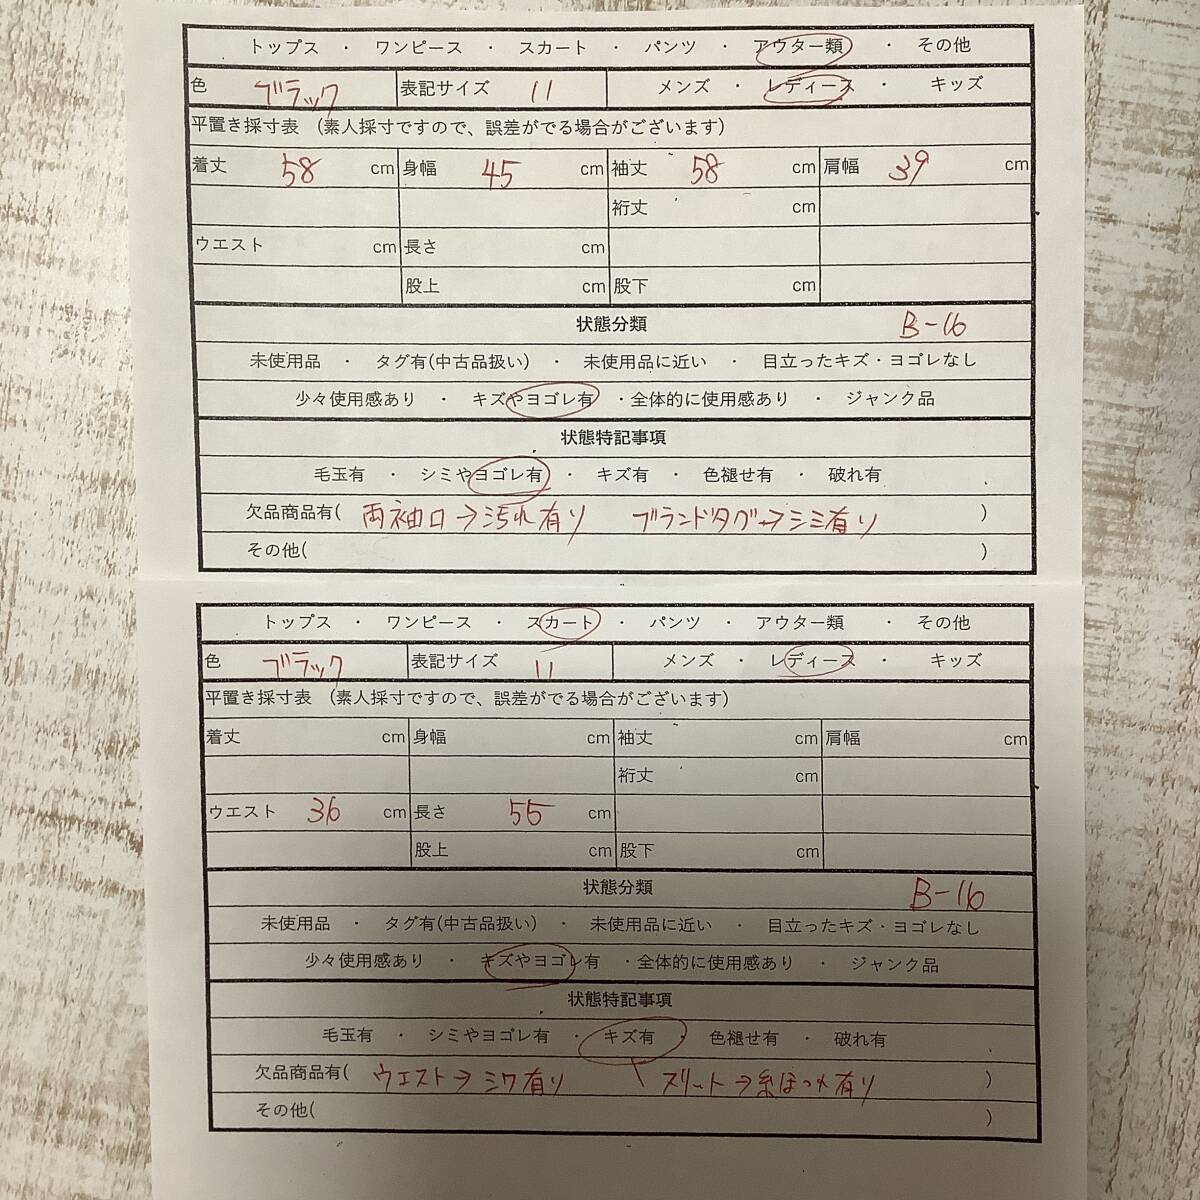 トップス ・ ワンピース ・ スカート ・ パンツ ・ アウター類 ・ その他
色 ブラック 表記サイズ 11 メンズ ・ レディース ・ キッズ
平置き採寸表 (素人採寸ですので、誤差がでる場合がございます)
着丈 58 cm 身幅 45 cm 袖丈 58 cm 肩幅 39 cm
裄丈 cm
ウエスト cm 長さ cm
股上 cm 股下 cm
状態分類 B-16
未使用品 ・ タグ有(中古品扱い) ・ 未使用品に近い ・ 目立ったキズ・ヨゴレなし
少々使用感あり ・ キズやヨゴレ有 ・全体的に使用感あり ・ ジャンク品
状態特記事項
毛玉有 ・ シミやヨゴレ有 ・ キズ有 ・ 色褪せ有 ・ 破れ有
欠品商品有( 両袖口→汚れ有り ブランドタグ→シミ有り )
その他( )
トップス ・ ワンピース ・ スカート ・ パンツ ・ アウター類 ・ その他
色 ブラック 表記サイズ 11 メンズ ・ レディース ・ キッズ
平置き採寸表 (素人採寸ですので、誤差がでる場合がございます)
着丈 cm 身幅 cm 袖丈 cm 肩幅 cm
裄丈 cm
ウエスト 36 cm 長さ 55 cm
股上 cm 股下 cm
状態分類 B-16
未使用品 ・ タグ有(中古品扱い) ・ 未使用品に近い ・ 目立ったキズ・ヨゴレなし
少々使用感あり ・ キズやヨゴレ有 ・全体的に使用感あり ・ ジャンク品
状態特記事項
毛玉有 ・ シミやヨゴレ有 ・ キズ有 ・ 色褪せ有 ・ 破れ有
欠品商品有( ウエスト→シワ有り スリット→糸ほつれ有り )
その他( )